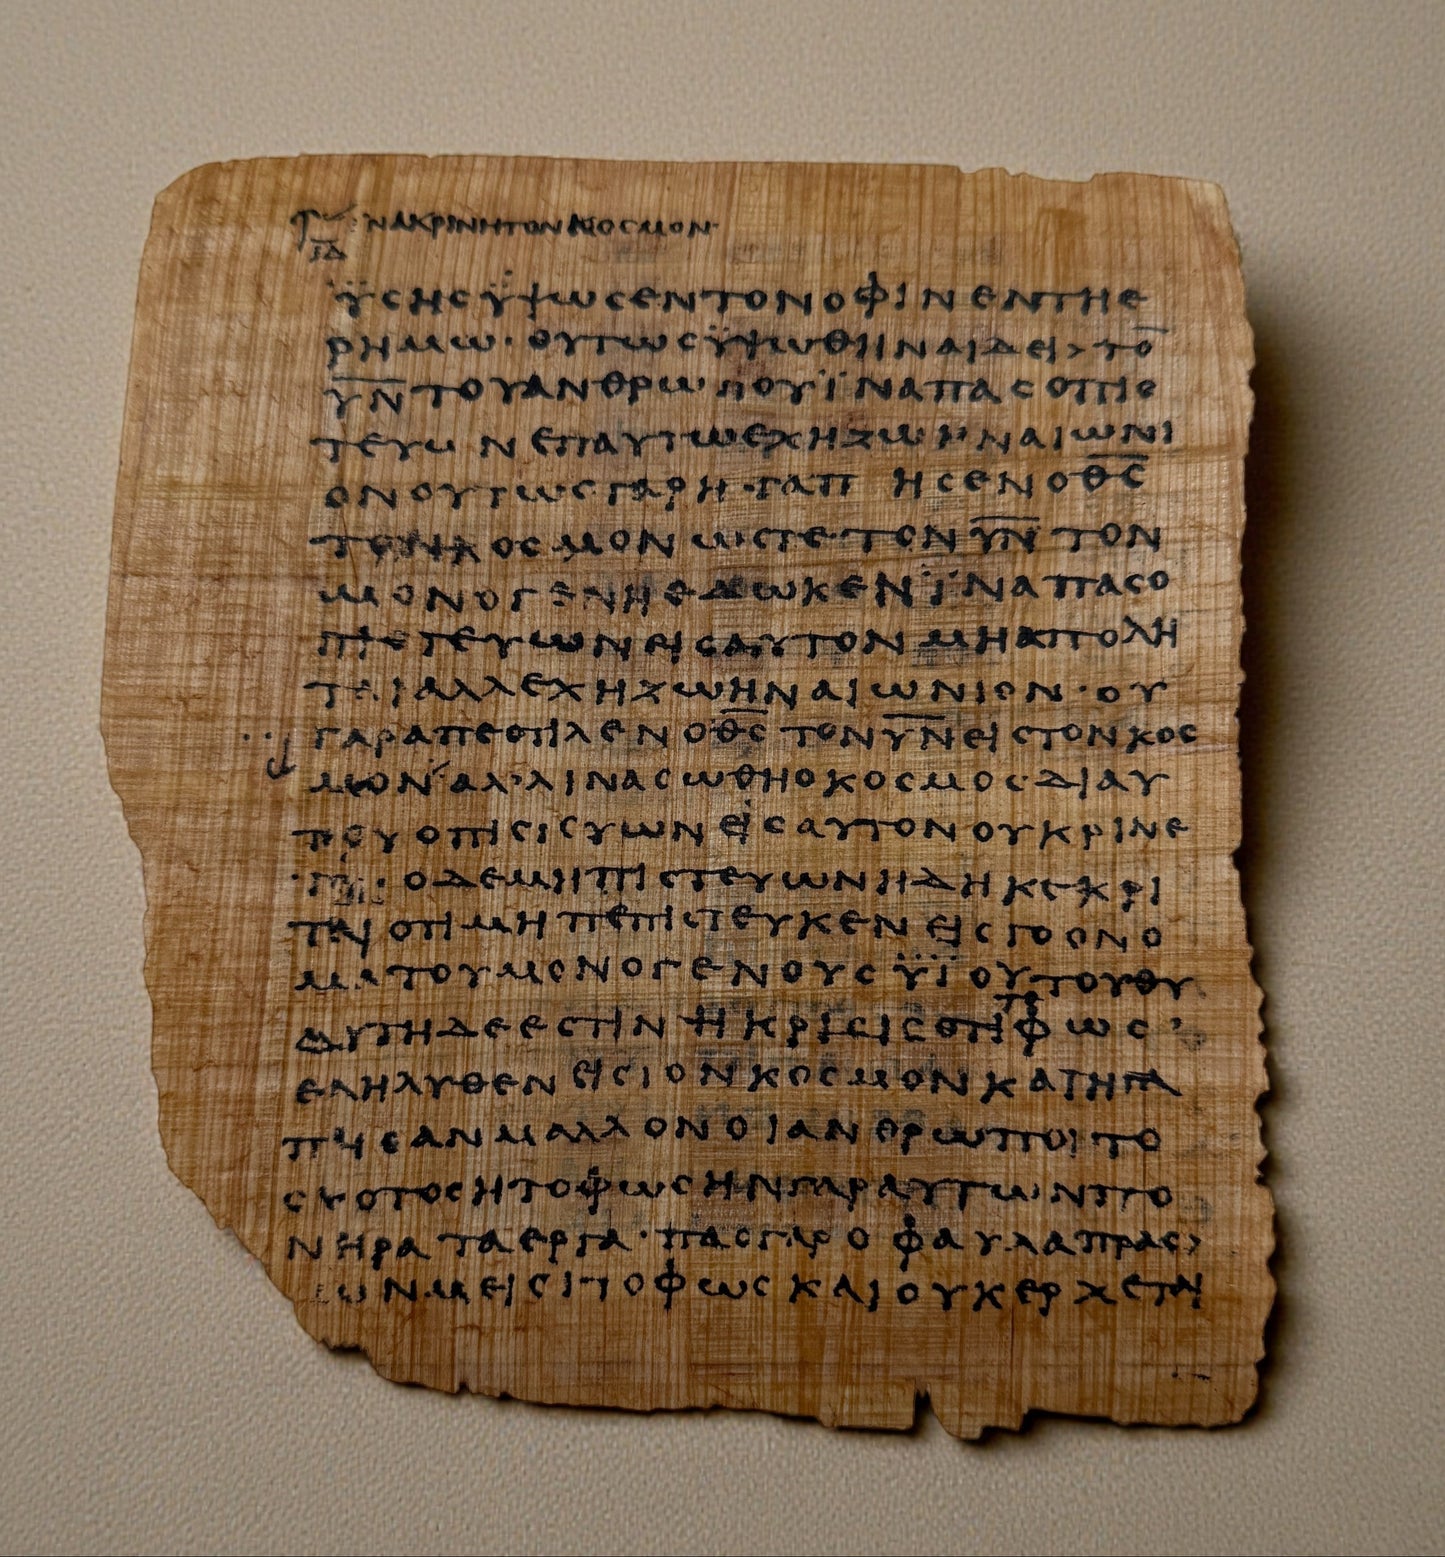 ΝΑΚΡΙΝΗΤΟΝΚΟСΜΟΝ·
ΙΔ
ΫСΗСΫΨΩСΕΝΤΟΝΟΦΙΝΕΝΤΗΕ
ΡΗΜΩ·ΟΥΤΩСΫΨΩΘΗΝΑΙΔΕΙ>ΤΟ̅
Υ̅Ν̅ΤΟΥΑΝΘΡΩΠΟΥΪΝΑΠΑСΟΠΙС
ΤΕΥΩΝΕΠΑΥΤΩΕΧΗΖΩΗΝΑΙΩΝΙ
ΟΝΟΥΤΩСΓΑΡΗ·ΓΑΠΗСΕΝΟΘ̅С̅
ΤΟΝΚΟСΜΟΝΩСΤΕ·ΤΟΝΥ̅Ν̅ΤΟΝ
ΜΟΝΟΓΕΝΗΕΔΩΚΕΝΪΝΑΠΑСΟ
ΠΙСΤΕΥΩΝΕΙСΑΥΤΟΝΜΗΑΠΟΛΗ
ΤΑΙΑΛΛΕΧΗΖΩΗΝΑΙΩΝΙΟΝ·ΟΥ
ΓΑΡΑΠΕСΤΙΛΕΝΟΘ̅С̅ΤΟΝΥ̅Ν̅ΕΙСΤΟΝΚΟС
ΜΟΝ ΑΛ·ΛΙΝΑСΩΘΗΟΚΟСΜΟС·ΔΙΑΥ
ΤΟΥΟΠΙСΙСΥΩΝΕΙСΑΥΤΟΝΟΥΚΡΙΝΕ
ΟΔΕΜΗΠΙСΤΕΥΩΝΗΔΗΚΕΚΡΙ
ΤΑΙΟΤΙΜΗΠΕΠΙСΤΕΥΚΕΝΕΙСΤΟΟΝΟ
ΜΑΤΟΥΜΟΝΟΓΕΝΟΥСΫΪΟΥΤΟΥΘΥ
ΑΥΤΗΔΕΕСΤΙΝΗΚΡΙСΙСΟΤΙΤΟΦΩС
ΕΛΗΛΥΘΕΝΕΙСΤΟΝΚΟСΜΟΝΚΑΙΗΓΑ
ΠΗСΑΝΜΑΛΛΟΝΟΙΑΝΘΡΩΠΟΙΤΟ
СΚΟΤΟСΗΤΟΦΩСΗΝΓΑΡΑΥΤΩΝΠΟ
ΝΗΡΑΤΑΕΡΓΑ·ΠΑСΓΑΡΟΦΑΥΛΑΠΡΑС
ΩΝΜΕΙСΙΤΟΦΩСΚΑΙΟΥΚΕΡΧΕΤΑΙ